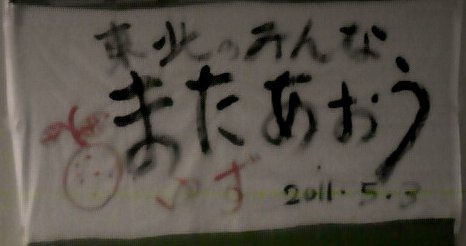 東北のみんな
またあおう
ゆず
2011.5.3